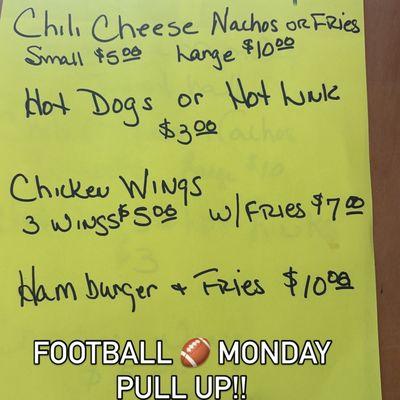 Chili Cheese Nachos or Fries
Small $5.00 Large $10.00
Hot Dogs or Hot Link
$3.00
Chicken Wings
3 Wings $5.00 w/Fries $7.00
Hamburger + Fries $10.00
FOOTBALL 🏈 MONDAY
PULL UP!!